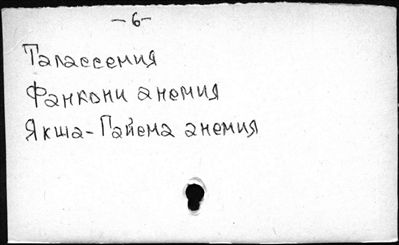 -6-
Талассемия
Фанкони анемия
Якша-Гайема анемия